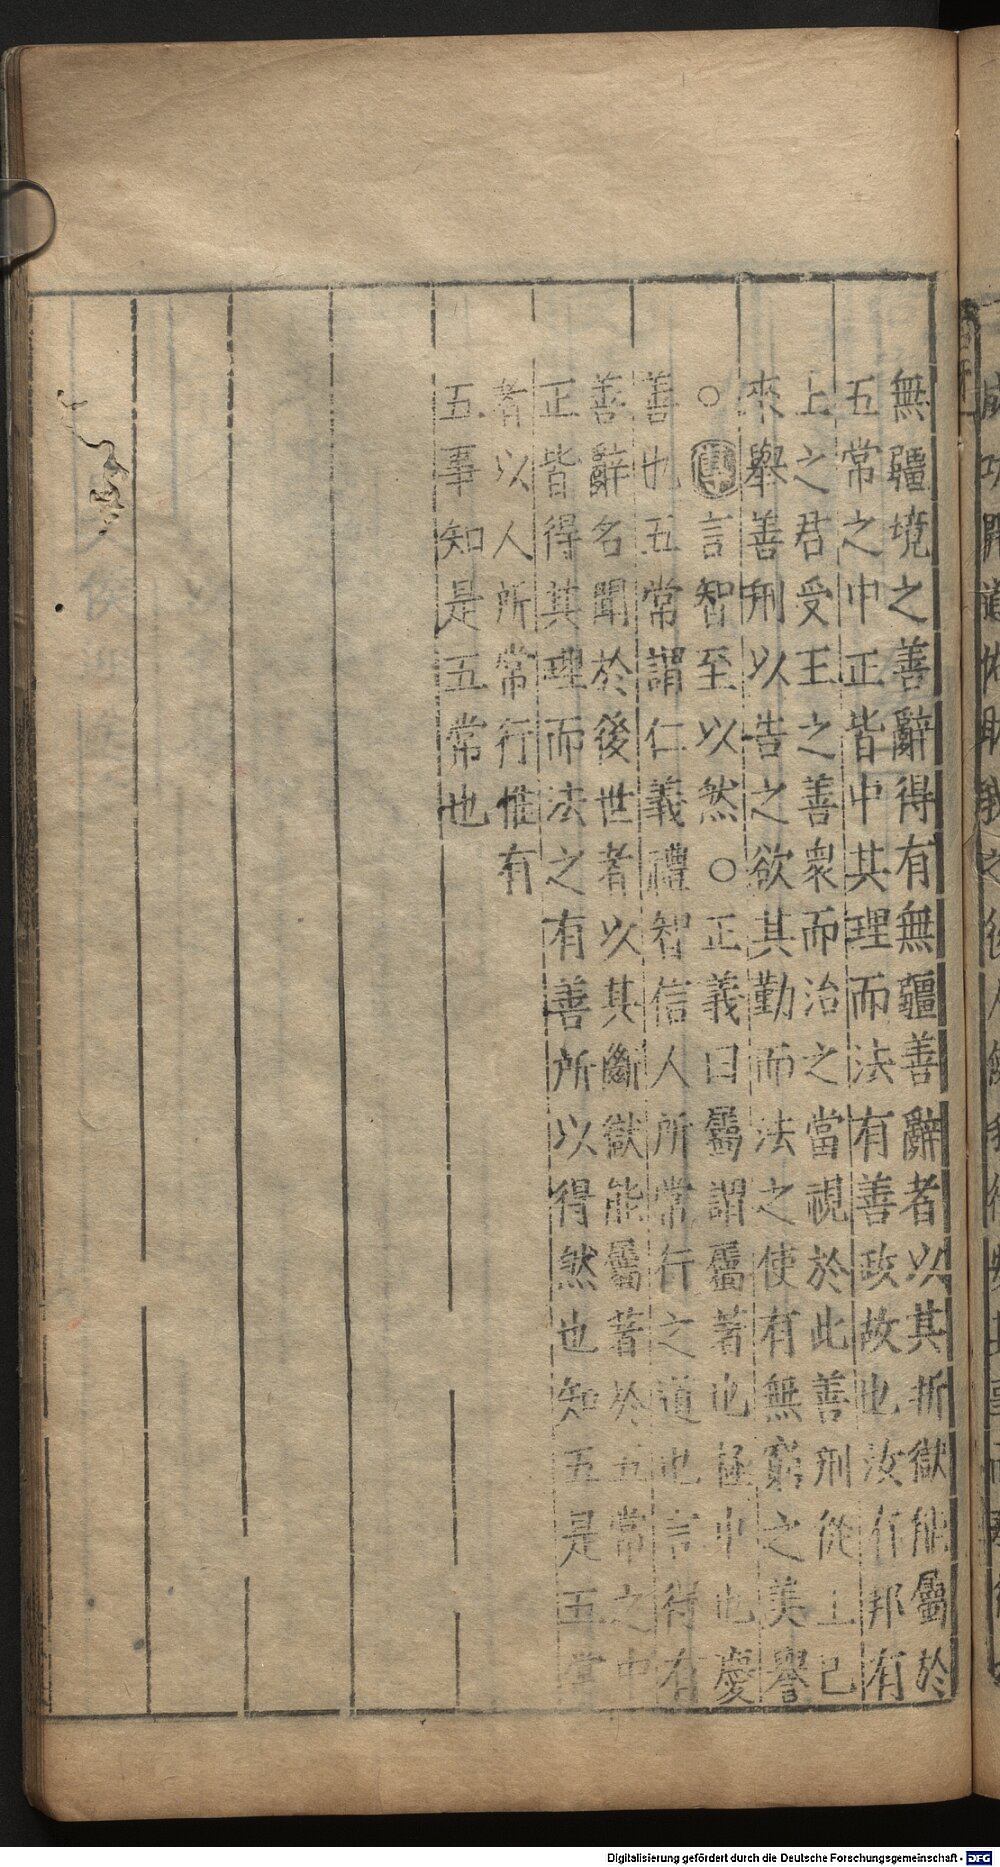 無疆境之善辭得有無疆善辭者以其折獄能屬於
五常之中正皆中其理而法有善政故也汝有邦有
上之君受王之善衆而治之當視於此善刑從上已
來舉善刑以告之欲其勤而法之使有無窮之美譽
○言智至以然○正義曰屬謂屬著也極中也慶
善也五常謂仁義禮智信人所常行之道也言得有
善辭名聞於後世者以其斷獄能屬著於五常之中
正皆得其理而法之有善所以得然也知五是五常
者以人所常行惟有
五事知是五常也
Digitalisierung gefördert durch die Deutsche Forschungsgemeinschaft - DFG